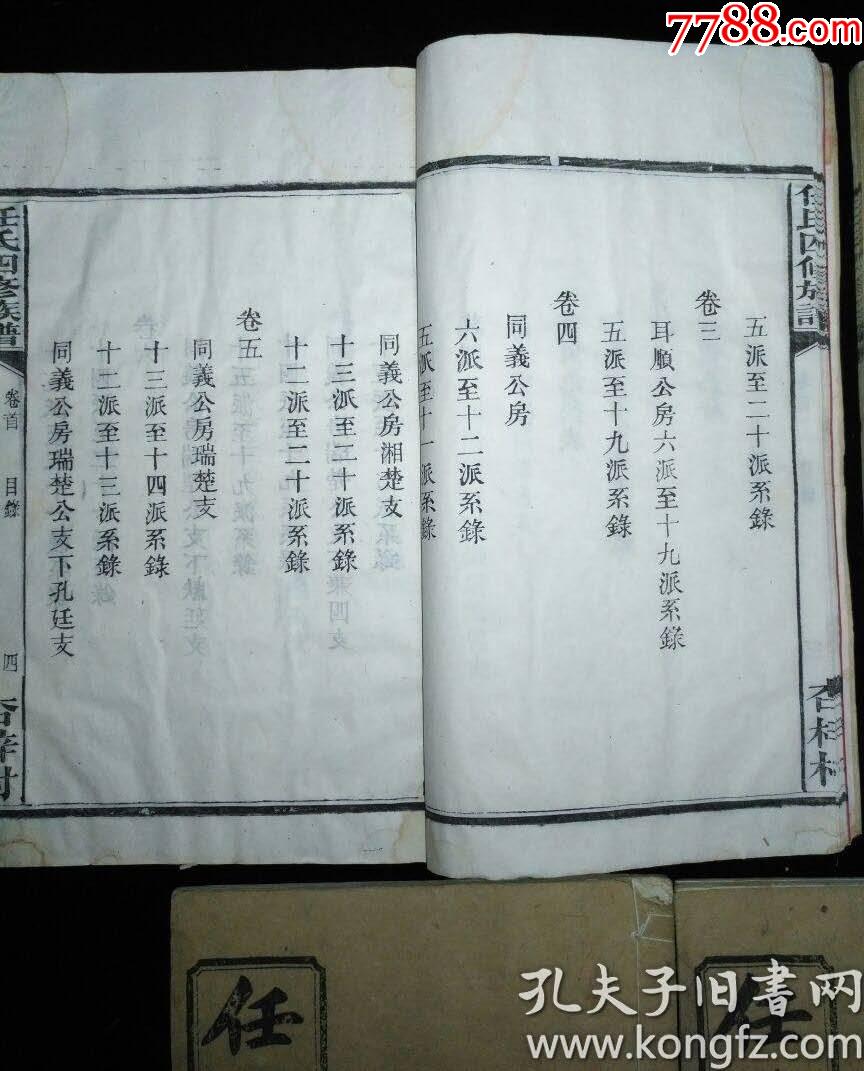 7788.com
任氏四修族譜
五派至二十派系錄
卷三
耳順公房六派至十九派系錄
五派至十九派系錄
卷四
同義公房
六派至十二派系錄
五派至十一派系錄
同義公房湘楚支
十三派至二十派系錄
十二派至二十派系錄
卷五
同義公房瑞楚支
十三派至十四派系錄
十二派至十三派系錄
同義公房瑞楚公支下孔廷支
任氏四修族譜
卷首
目錄
四
任
任
孔夫子旧书网
www.kongfz.com